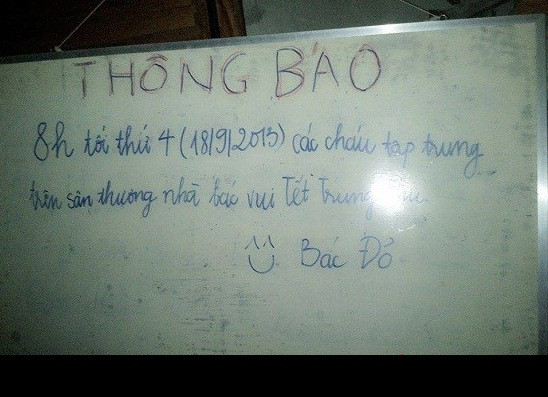 THÔNG BÁO
8h tối thứ 4 (18/9/2013) các cháu tập trung
trên sân thượng nhà bác vui Tết Trung
^^ Bác Đỏ